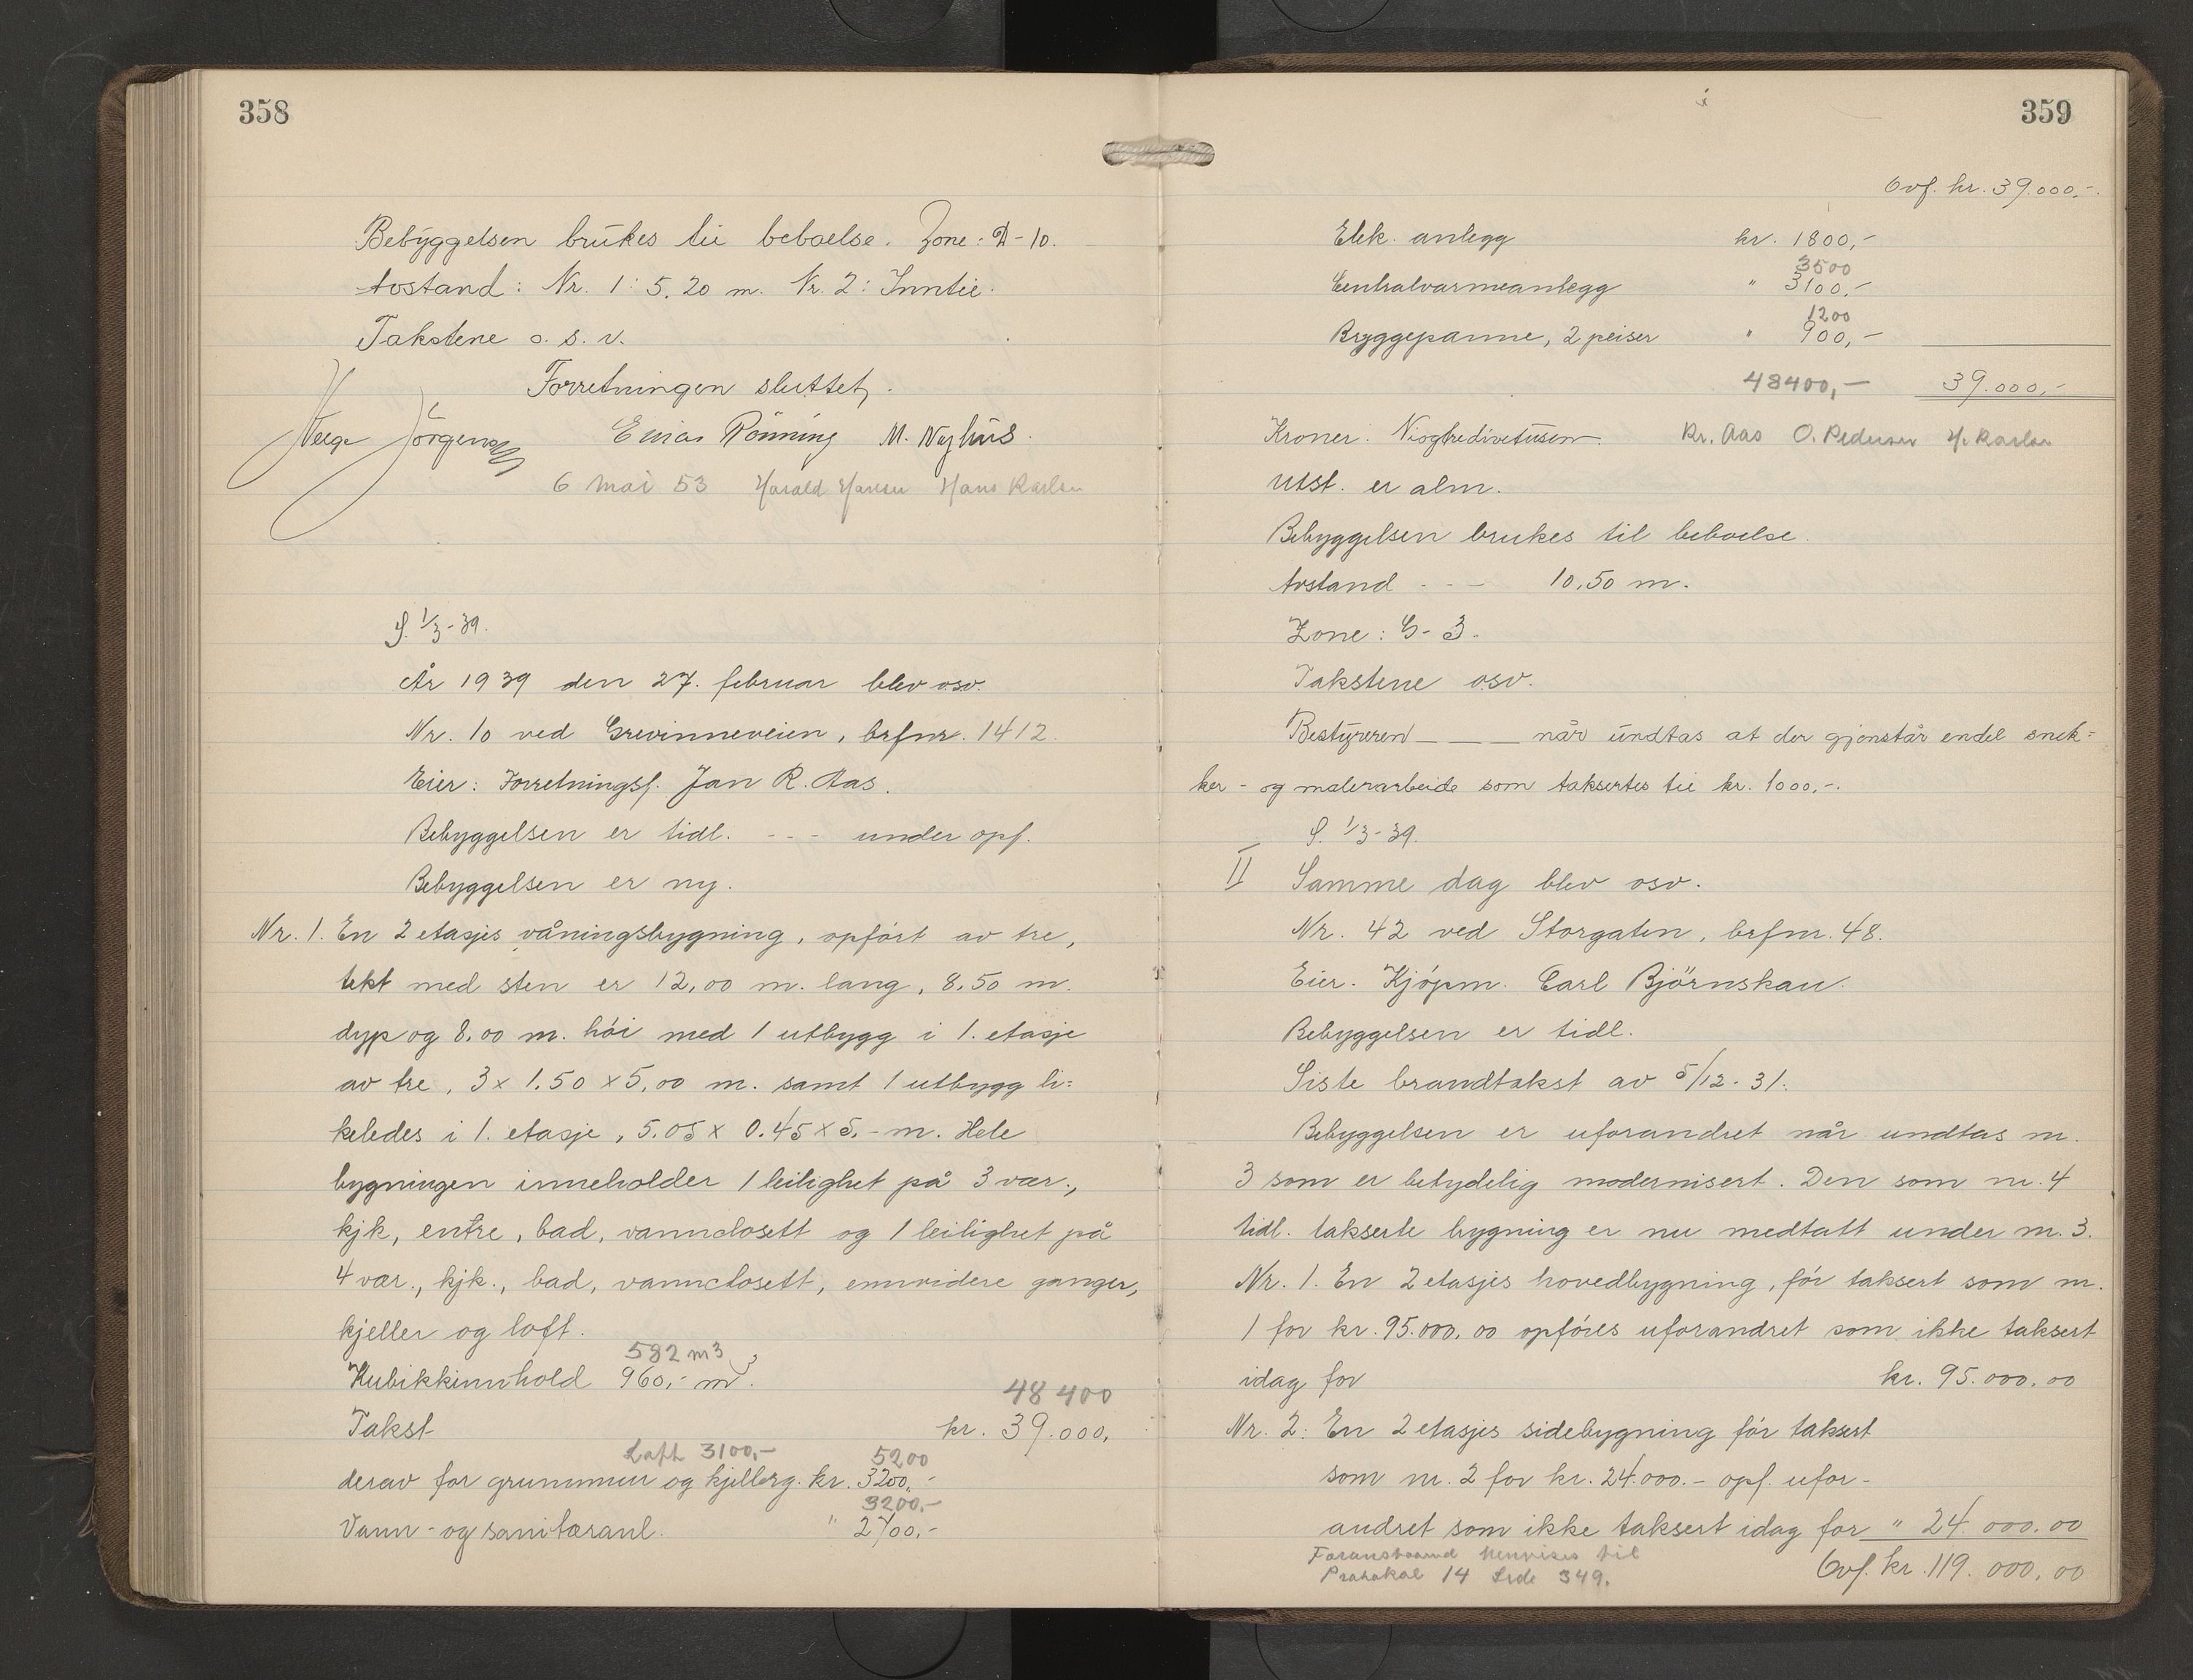 358
Bebyggelsen brukes til beboelse. Zone: D-10.
Avstand: Nr. 1: 5.20 m. Nr. 2: Inntil.
Takstene o. s. v.
Forretningen sluttet,
Helge Jörgensen Einar Rönning M. Nyhus.
6 mai 53 Harald Hansen Hans Karlsen
S. 1/3-39.
År 1939 den 27. februar blev osv.
Nr. 10 ved Grevinneveien, brfnr. 1412.
Eier: Forretningsf. Jan R. Aas.
Bebyggelsen er tidl. - - - under opf.
Bebyggelsen er ny.
Nr. 1. En 2 etasjes våningsbygning, opført av tre,
tekt med sten er 12,00 m. lang, 8,50 m.
dyp og 8,00 m. høi med 1 utbygg i 1. etasje
av tre, 3 x 1.50 x 5,00 m. samt 1 utbygg li=
keledes i 1. etasje, 5.05 x 0.45 x 5.- m. Hele
bygningen inneholder 1 leilighet på 3 vær.,
kjk, entre, bad, vannclosett og 1 leilighet på
4 vær., kjk., bad, vannclosett, ennvidere ganger,
kjeller og loft.
582 m3
Kubikkinnhold 960,- m3.
48 400
Takst kr. 39.000,
Loft 3100,- 5200
derav for grunnmur og kjellerg. kr. 3200,-
3200,-
Vann- og sanitæranl. " 2700,-
359
Ovf. kr. 39.000,-.
Elek. anlegg kr. 1800,-
3500
Centralvarmeanlegg " 3100,-
1200
Bryggepanne, 2 peiser " 900,-
48400,- 39.000,-
Kroner. Niogtredivetusen. Kr. Aas O. Pedersen H. Karlsen
Utst. er alm.
Bebyggelsen brukes til beboelse.
Avstand - - - 10,50 m.
Zone: G-3.
Takstene osv.
Bestyreren — — — når undtas at der gjenstår endel snek=
ker- og malerarbeide som taksertes til kr. 1000,-.
S. 1/3-39.
II Samme dag blev osv.
Nr. 42 ved Storgaten, brfnr. 48.
Eier. Kjøpm. Carl Björnskau.
Bebyggelsen er tidl.
Siste brandtakst av 5/12-31.
Bebyggelsen er uforandret når undtas nr.
3 som er betydelig modernisert. Den som nr. 4
tidl. takserte bygning er nu medtatt under nr. 3.
Nr. 1. En 2 etasjes hovedbygning, før taksert som nr.
1 for kr. 95.000,00 opføres uforandret som ikke taksert
idag for kr. 95.000.00
Nr. 2: En 2 etasjes sidebygning før taksert
som nr. 2 for kr. 24.000.- opf. ufor-
andret som ikke taksert idag for " 24.000.00
Foranstaand henvises til
Protokol 14 Side 349.
Ovf. kr. 119.000,00